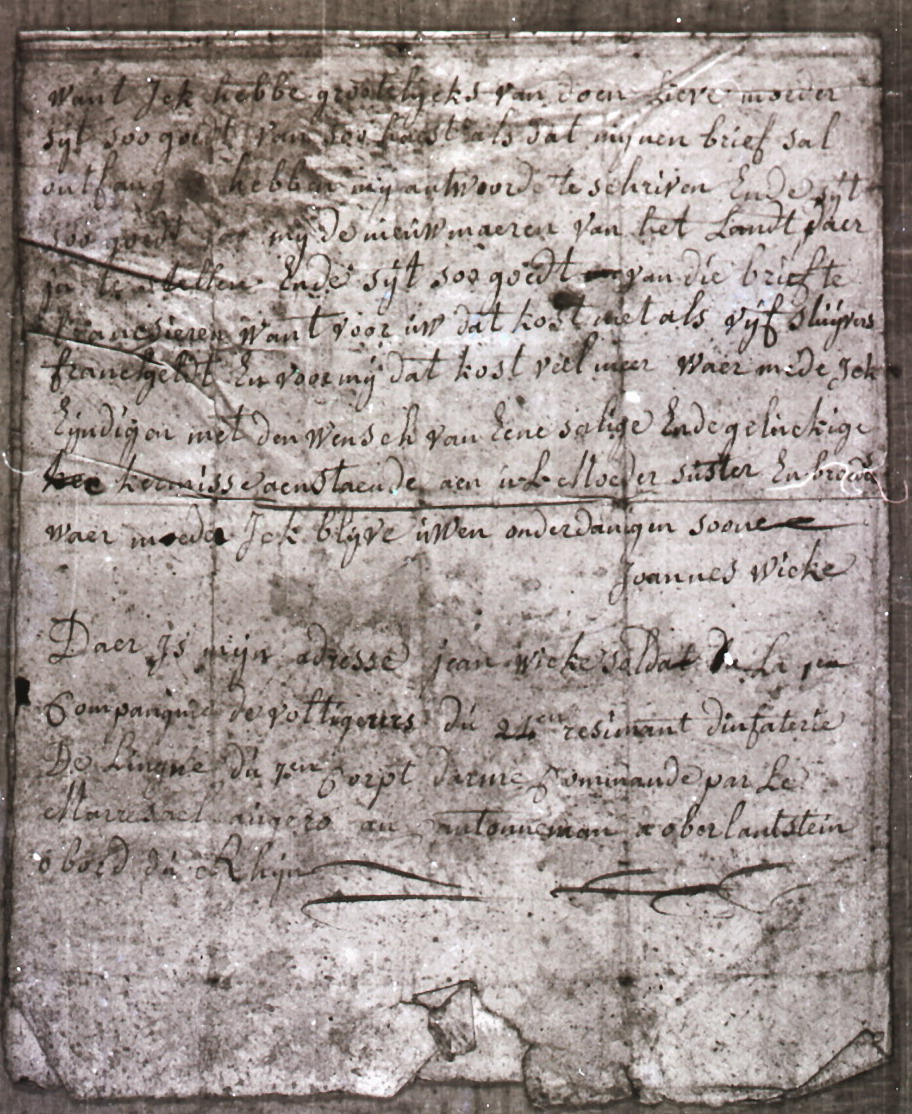 want Jck hebbe grootelijcks van doen Lieve moeder
syt soo goedt van soo haest als dat mijnen brief sal
ontfang hebben my antwoorde te schriven Ende syt
soo goedt my de nieuwmaeren van het Landt daer
in te stellen Ende syt soo goedt van die brief te
francsieren want voor uw dat kost met als vyf stuyvers
franckgeldt En voor my dat kost viel meer waer mede Jck
Eyndigen met den wensch van Eene salige Ende geluckige
kermisse aenstaende aen u L Moeder suster En broeder
waer moeder Jck blyve uwen onderdanigen soone
Joannes wieke
Daer Js mijn adresse jean wieke soldat La
Compangnie de voltigeurs du 24en resimant dinfaterie
De Lingne du 7em Corpt darme Commande par Le
Marresael angero au cantonneman a oberlantstein
o bord du Rhijn